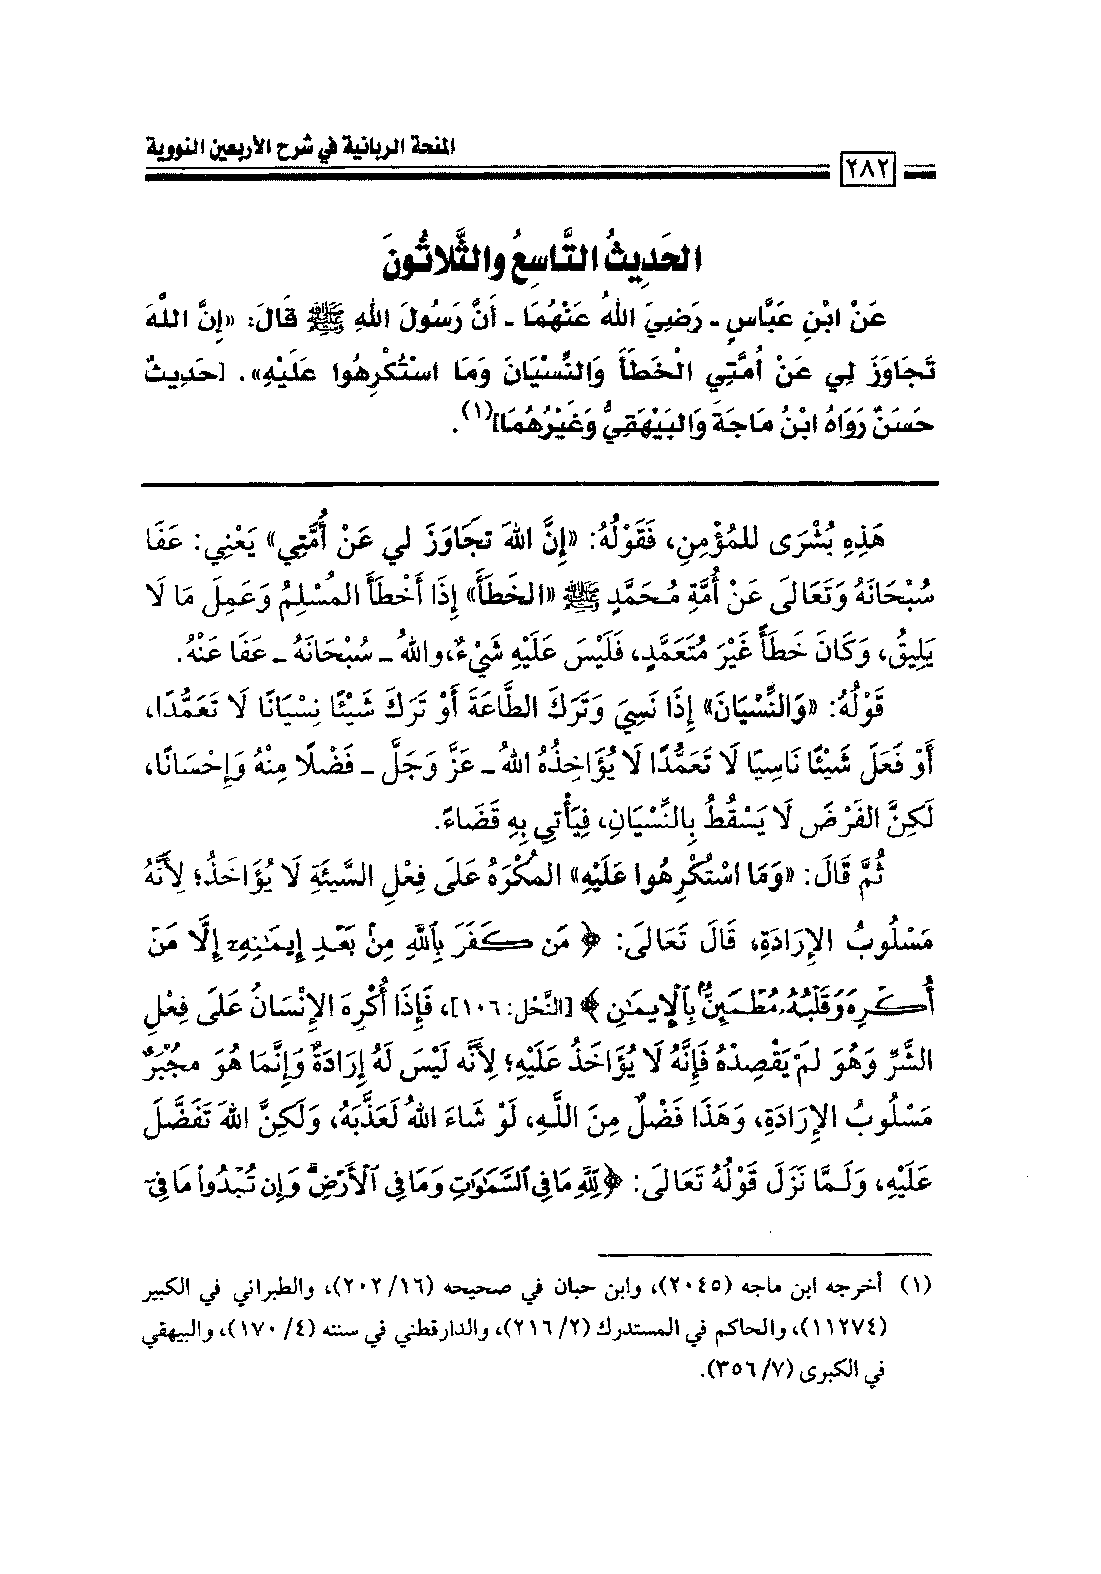 المنحة الربانية في شرح الأربعين النووية
٢٨٢
الحَدِيثُ التَّاسِعُ والثَّلاثُونَ
عَنْ ابْنِ عَبَّاسٍ ـ رَضِيَ اللهُ عَنْهُمَا ـ أَنَّ رَسُولَ اللهِ ﷺ قَالَ: «إِنَّ اللَّهَ
تَجَاوَزَ لِي عَنْ أُمَّتِي الْخَطَأَ وَالنِّسْيَانَ وَمَا اسْتُكْرِهُوا عَلَيْهِ». [حَدِيثٌ
حَسَنٌ رَوَاهُ ابْنُ مَاجَةَ وَالبَيْهَقِيُّ وَغَيْرُهُمَا](١).
هَذِهِ بُشْرَى للمُؤْمِنِ، فَقَوْلُهُ: «إِنَّ اللهَ تجَاوَزَ لي عَنْ أُمَّتِي» يَعْنِي: عَفَا
سُبْحَانَهُ وَتَعَالَى عَنْ أُمَّةِ مُحَمَّدٍ ﷺ «الخَطَأَ» إِذَا أَخْطَأَ المُسْلِمُ وَعَمِلَ مَا لَا
يَلِيقُ، وَكَانَ خَطَأً غَيْرَ مُتَعَمَّدٍ، فَلَيْسَ عَلَيْهِ شَيْءٌ، واللهُ ـ سُبْحَانَهُ ـ عَفَا عَنْهُ.
قَوْلُهُ: «وَالنِّسْيَانَ» إِذَا نَسِيَ وَتَرَكَ الطَّاعَةَ أَوْ تَرَكَ شَيْئًا نِسْيَانًا لَا تَعَمُّدًا،
أَوْ فَعَلَ شَيْئًا نَاسِيًا لَا تَعَمُّدًا لَا يُؤَاخِذُهُ اللهُ ـ عَزَّ وَجَلَّ ـ فَضْلًا مِنْهُ وَإِحْسَانًا،
لَكِنَّ الفَرْضَ لَا يَسْقُطُ بِالنِّسْيَانِ، فَيَأْتِي بِهِ قَضَاءً.
ثُمَّ قَالَ: «وَمَا اسْتُكْرِهُوا عَلَيْهِ» المُكْرَهُ عَلَى فِعْلِ السَّيِّئَةِ لَا يُؤَاخَذُ؛ لِأَنَّهُ
مَسْلُوبُ الإِرَادَةِ، قَالَ تَعَالَى: ﴿ مَن كَفَرَ بِٱللَّهِ مِنۢ بَعْدِ إِيمَـٰنِهِۦٓ إِلَّا مَنْ
أُكْـرِهَ وَقَلْبُهُۥ مُطْمَئِنٌّۢ بِٱلْإِيمَـٰنِ ﴾ [النَّحْل: ١٠٦]، فَإِذَا أُكْرِهَ الإِنْسَانُ عَلَى فِعْلِ
الشَّرِّ وَهُوَ لَمْ يَقْصِدْهُ فَإِنَّهُ لَا يُؤَاخَذُ عَلَيْهِ؛ لِأَنَّه لَيْسَ لَهُ إِرَادَةٌ وَإِنَّمَا هُوَ مجُبْرٌ
مَسْلُوبُ الإِرَادَةِ، وَهَذَا فَضْلٌ مِنَ اللَّهِ، لَوْ شَاءَ اللهُ لَعَذَّبَهُ، وَلَكِنَّ اللهَ تَفَضَّلَ
عَلَيْهِ، وَلَمَّا نَزَلَ قَوْلُهُ تَعَالَى: ﴿لِلَّهِ مَا فِي ٱلسَّمَـٰوَٰتِ وَمَا فِي ٱلْأَرْضِۗ وَإِن تُبْدُوا۟ مَا فِىٓ
(١) أخرجه ابن ماجه (٢٠٤٥)، وابن حبان في صحيحه (١٦/ ٢٠٢)، والطبراني في الكبير
(١١٢٧٤)، والحاكم في المستدرك (٢/ ٢١٦)، والدارقطني في سننه (٤/ ١٧٠)، والبيهقي
في الكبرى (٧/ ٣٥٦).